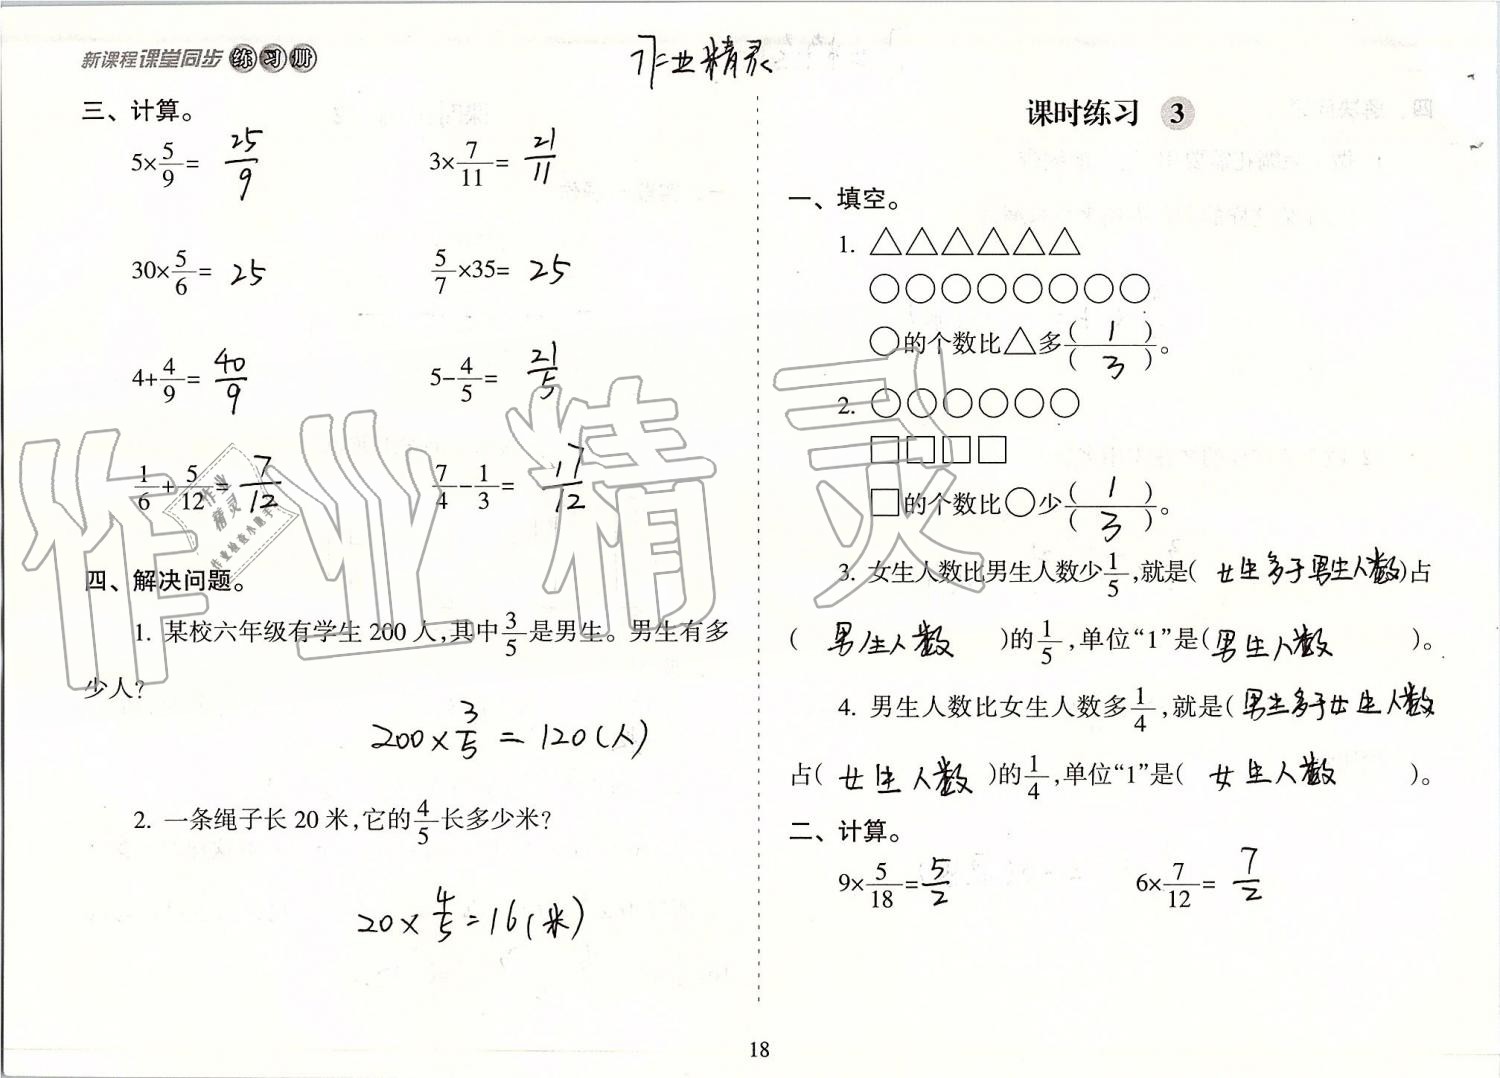 新课程课堂同步练习册
作业精灵
三、计算。
5×5/9= 25/9 3×7/11= 21/11
30×5/6= 25 5/7×35= 25
4+4/9= 40/9 5-4/5= 21/5
1/6+5/12= 7/12 7/4-1/3= 17/12
四、解决问题。
1. 某校六年级有学生 200 人,其中3/5是男生。男生有多
少人?
200×3/5=120(人)
2. 一条绳子长 20 米,它的4/5长多少米?
20×4/5=16(米)
课时练习 3
一、填空。
1. △△△△△△
○○○○○○○○
○的个数比△多(1)/(3)。
2. ○○○○○○
□□□□
□的个数比○少(1)/(3)。
3. 女生人数比男生人数少1/5,就是(女生多于男生人数)占
(男生人数)的1/5,单位“1”是(男生人数)。
4. 男生人数比女生人数多1/4,就是(男生多于女生人数
占(女生人数)的1/4,单位“1”是(女生人数)。
二、计算。
9×5/18=5/2 6×7/12= 7/2
18
作业精灵
作业
精灵
作业检查小助手